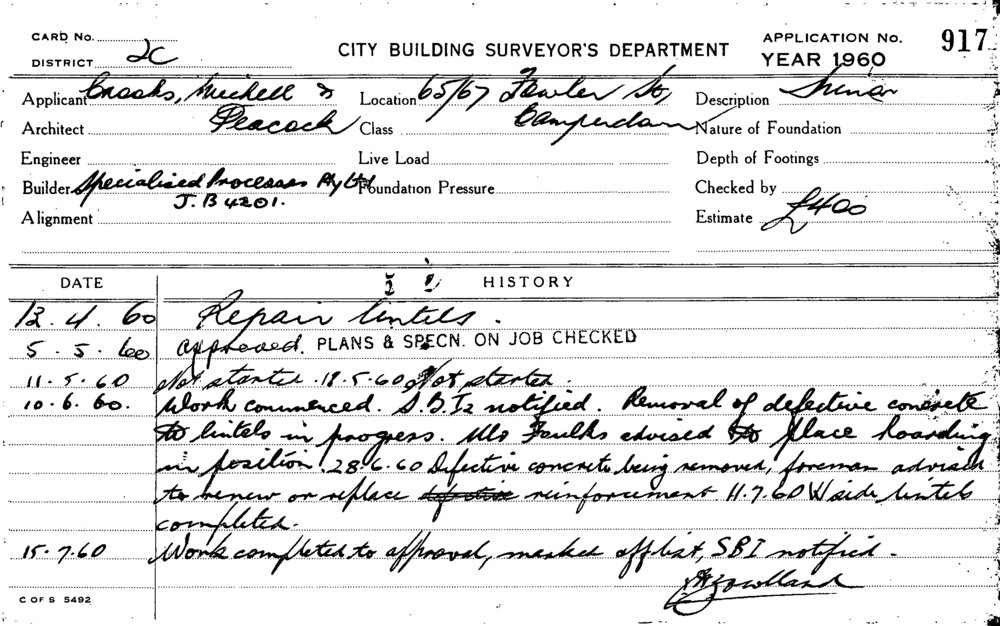 CARD No.
DISTRICT 2C
CITY BUILDING SURVEYOR'S DEPARTMENT
APPLICATION No. 917
YEAR 1960
Applicant Crooks, Michell &
Peacock
Location 65/67 Fowler St,
Camperdown
Description Minor
Architect
Class
Nature of Foundation
Engineer
Live Load
Depth of Footings
Builder Specialised Processes Pty Ltd
J.B 4201.
Foundation Pressure
Checked by
Alignment
Estimate £400
DATE HISTORY
12.4.60 Repair lintels.
5.5.60 approved. PLANS & SPECN. ON JOB CHECKED
11.5.60 Not started. 18.5.60 Not started.
10.6.60. Work commenced. S.B.I. notified. Removal of defective concrete
to lintels in progress. Mr Foulks advised to place hoarding
in position. 28.6.60 Defective concrete being removed, foreman advised
to renew or replace defective reinforcement. 11.7.60 W side lintels
completed.
15.7.60 Work completed to approval, marked off list, SBI notified.
C OF S 5492